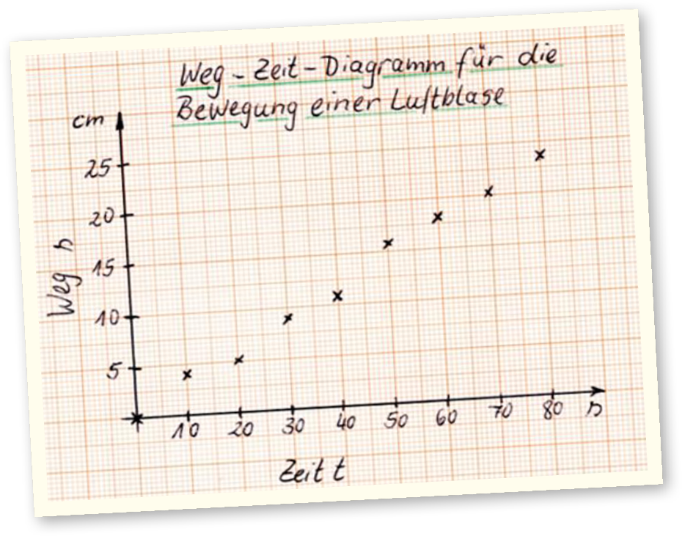 Weg-Zeit-Diagramm für die
Bewegung einer Luftblase
cm
25
20
15
10
5
Weg s
10 20 30 40 50 60 70 80 s
Zeit t